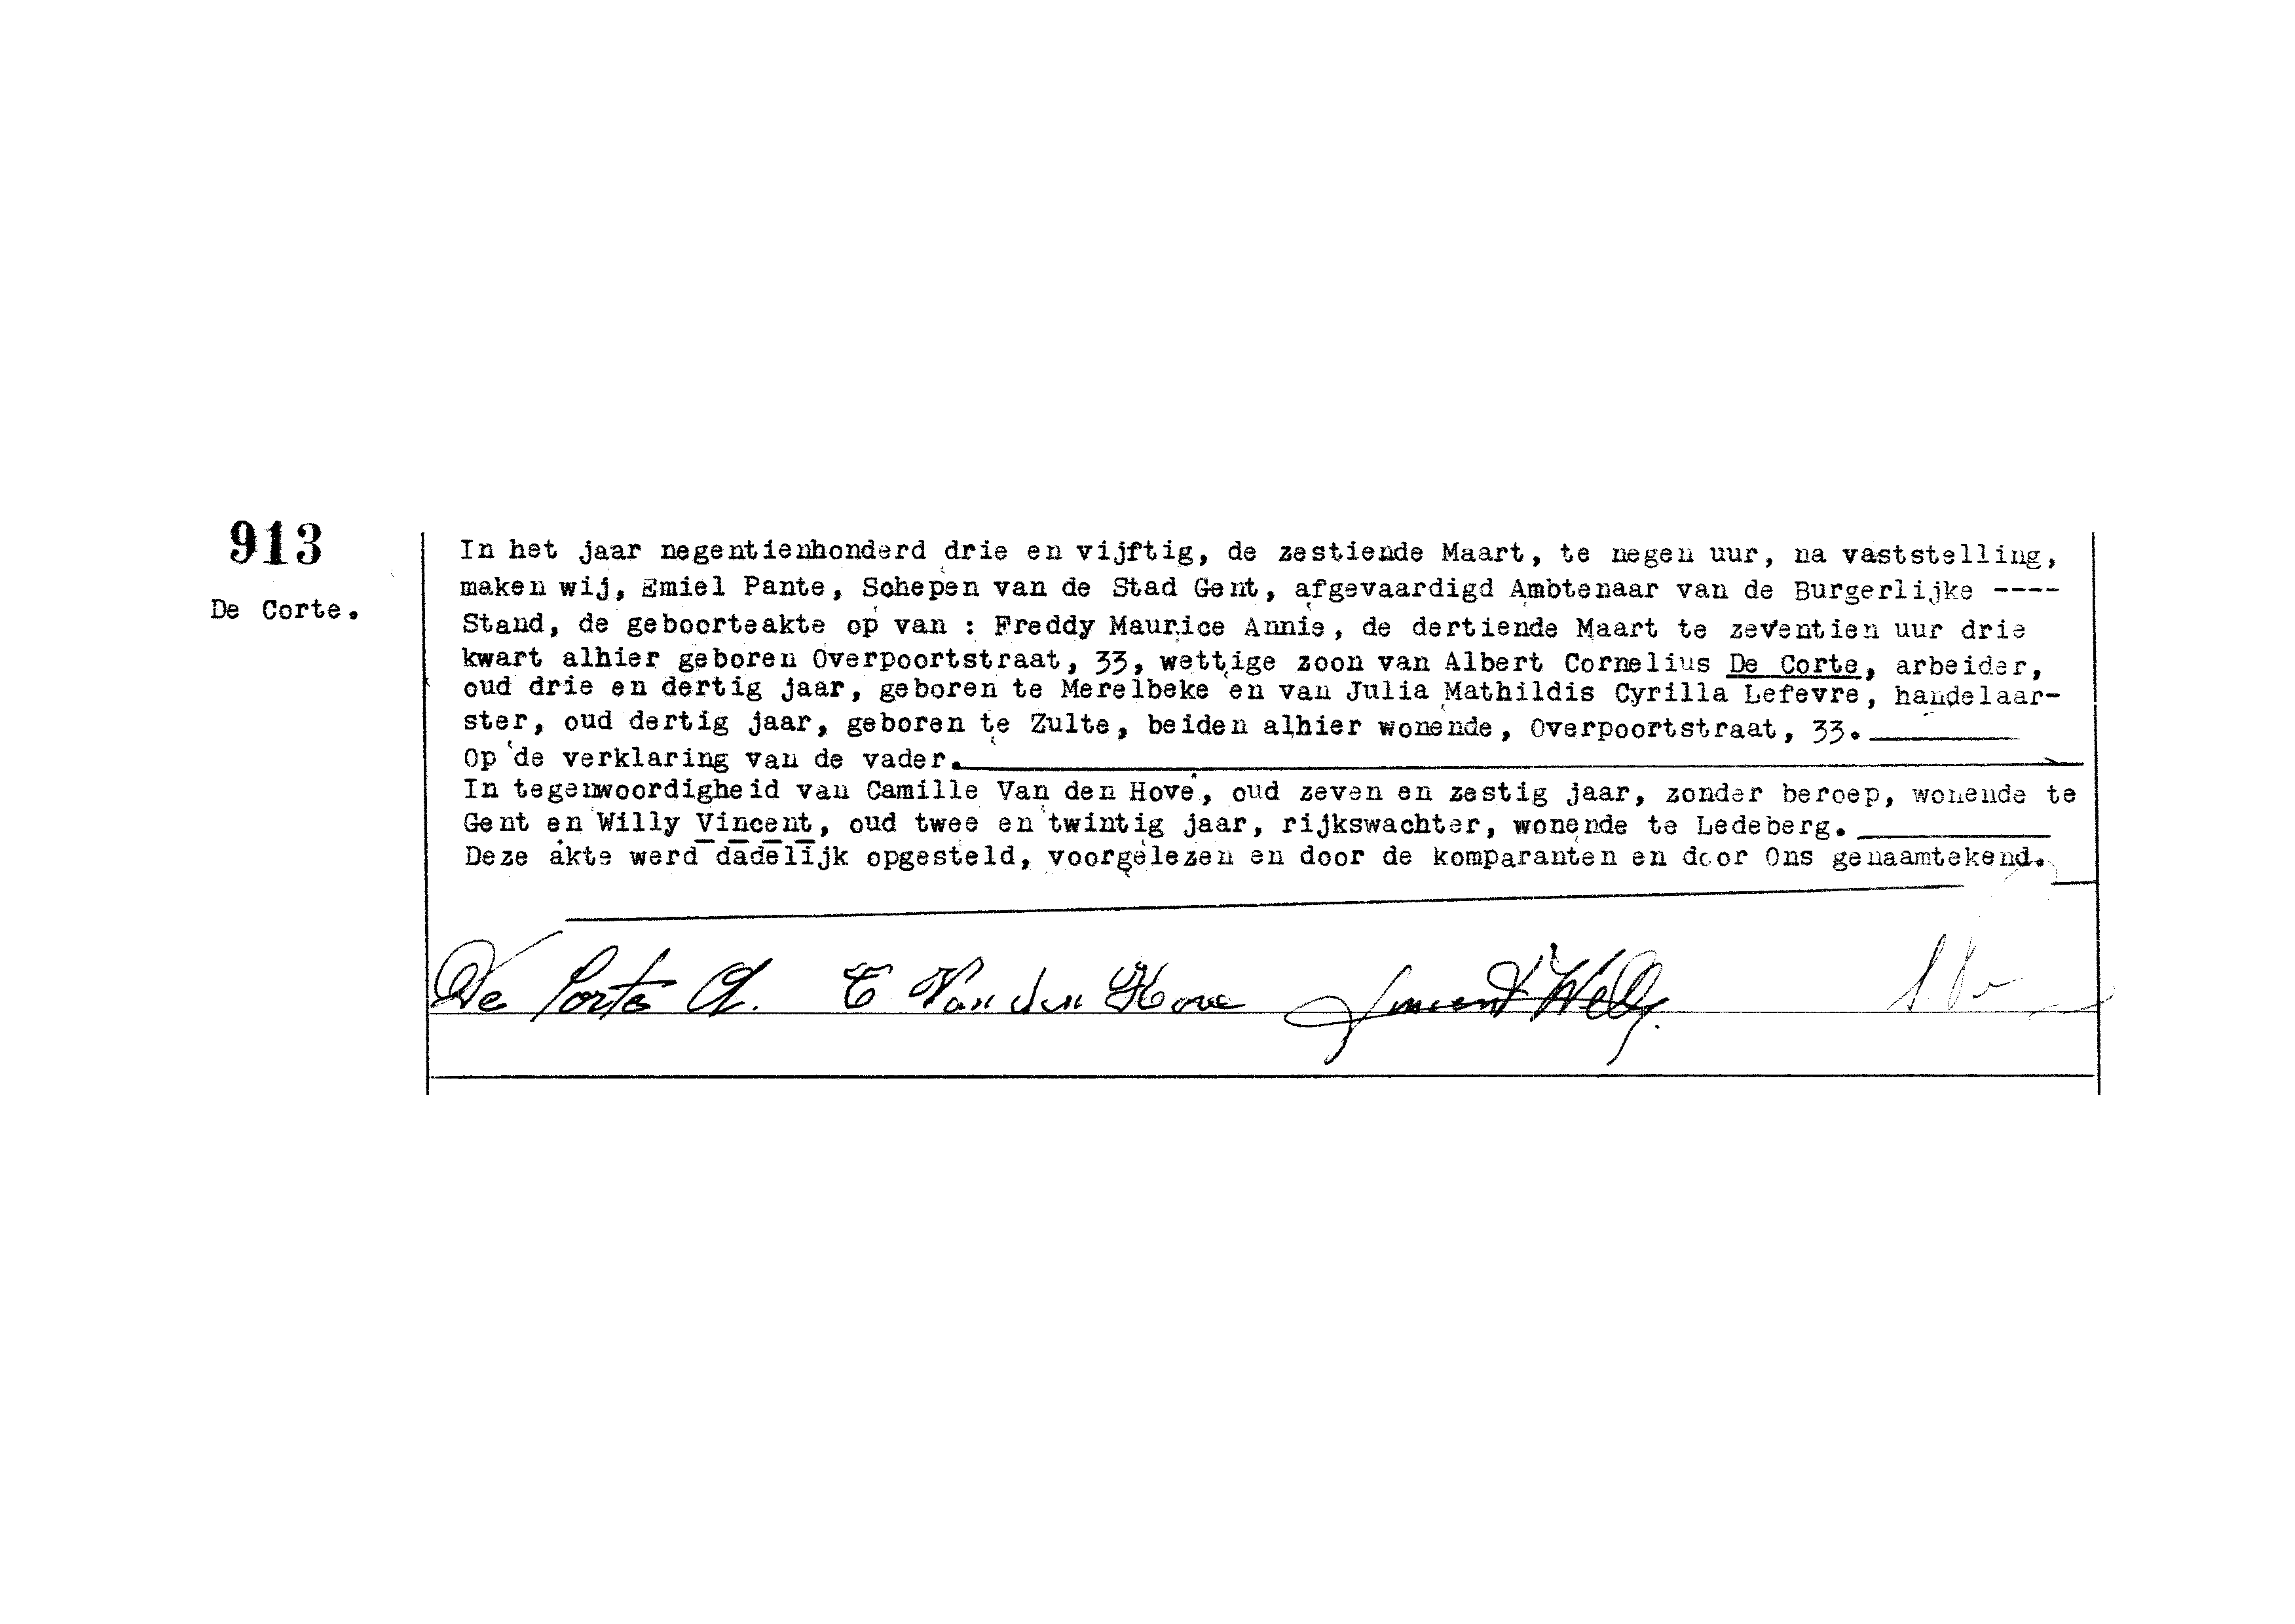 913
De Corte.
In het jaar negentienhonderd drie en vijftig, de zestiende Maart, te negen uur, na vaststelling,
maken wij, Emiel Pante, Schepen van de Stad Gent, afgevaardigd Ambtenaar van de Burgerlijke ----
Stand, de geboorteakte op van : Freddy Maurice Annie, de dertiende Maart te zeventien uur drie
kwart alhier geboren Overpoortstraat, 33, wettige zoon van Albert Cornelius De Corte, arbeider,
oud drie en dertig jaar, geboren te Merelbeke en van Julia Mathildis Cyrilla Lefevre, handelaar-
ster, oud dertig jaar, geboren te Zulte, beiden alhier wonende, Overpoortstraat, 33.
Op de verklaring van de vader.
In tegenwoordigheid van Camille Van den Hove, oud zeven en zestig jaar, zonder beroep, wonende te
Gent en Willy Vincent, oud twee en twintig jaar, rijkswachter, wonende te Ledeberg.
Deze akte werd dadelijk opgesteld, voorgelezen en door de komparanten en door Ons genaamtekend.
De Corte A. C Van den Hove Vincent Willy.